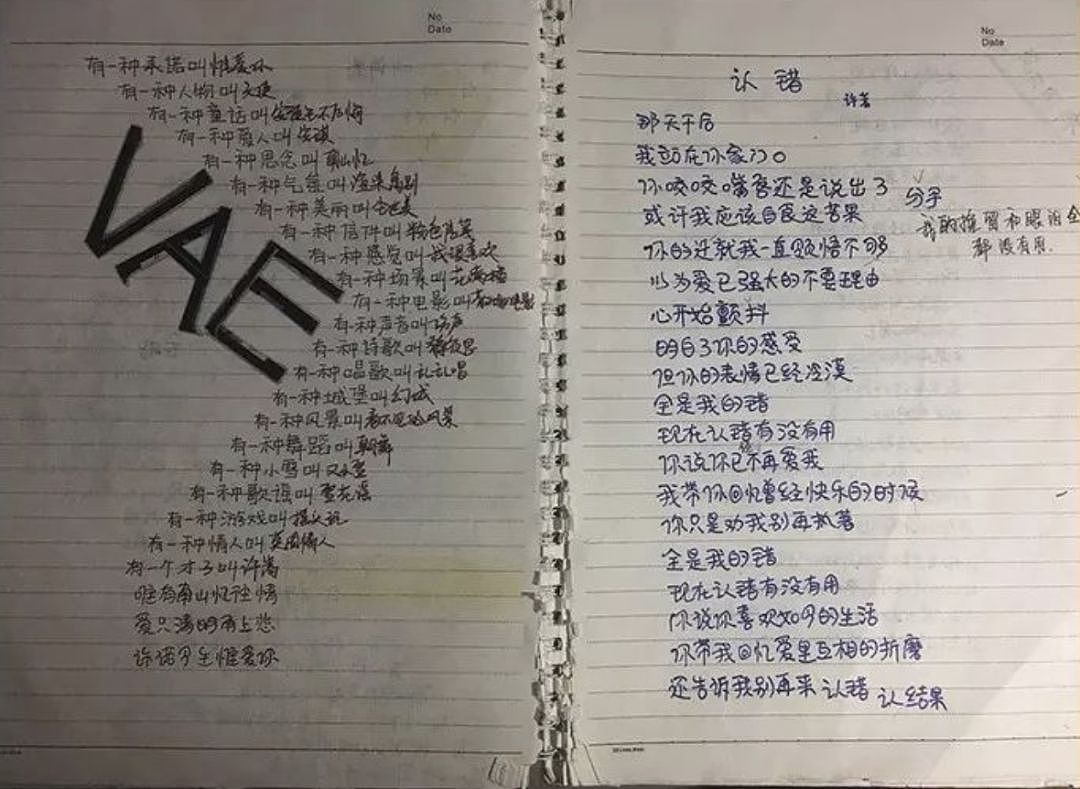 No
Date
有一种承诺叫惟爱你
有一种人物叫天使
有一种童话叫
有一种爱人叫安琪
有一种思念叫南山忆
有一种气氛叫渲染离别
有一种美丽叫
有一种信件叫粉色信笺
有一种感觉叫我很喜欢
有一种场景叫花满楼
有一种电影叫
有一种声音叫
有一种诗歌叫
有一种唱歌叫乱乱唱
有一种城堡叫幻城
有一种风景叫看不见的风景
有一种舞蹈叫
有一种小雪叫
有一种歌谣叫雪花谣
有一种游戏叫摇头玩
有一种情人叫
有一个才子叫许嵩
唯有南山忆往情
爱只
许诺今生惟爱你
VAE
No
Date
认错
许嵩
那天午后
我站在你家门口
你咬咬嘴唇还是说出了 分手
我的挽留和眼泪全都没有用
或许我应该自食这苦果
你的迁就我一直领悟不够
以为爱已强大的不要理由
心开始颤抖
明白了你的感受
但你的表情已经冷漠
全是我的错
现在认错有没有用
你说你已不再爱我
我带你回忆曾经快乐的时候
你只是劝我别再执著
全是我的错
现在认错有没有用
你说你喜欢如今的生活
你带我回忆爱里互相的折磨
还告诉我别再来认错 认结果